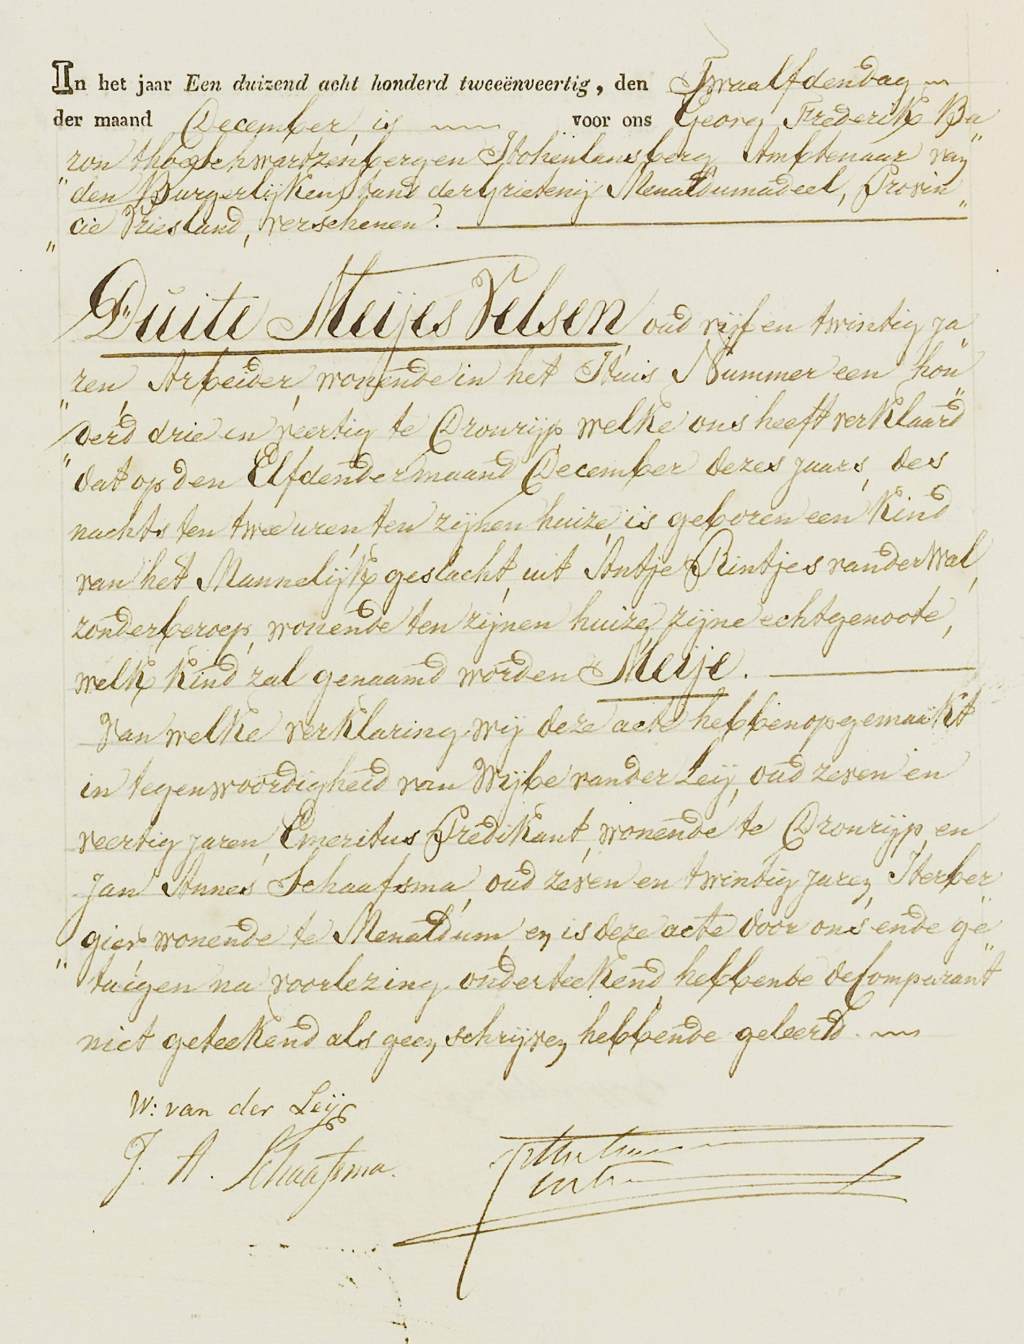 In het jaar Een duizend acht honderd tweeënveertig, den Twaalfdendag
der maand December, is voor ons Georg Frederik Ba„
„ron thoe Schwartzenberg en Hohenlansberg Ambtenaar van
den Burgerlijken stand der Grietenij Menaldumadeel, Provin„
„cie Vriesland, verschenen.
Duite Meijes Velsen, oud vijf en twintig ja„
„ren, Arbeider, wonende in het Huis Nummer een hon„
„derd drie en veertig te Dronrijp welke ons heeft verklaard
dat op den Elfden der maand December dezes jaars, des
nachts ten twee uren ten zijnen huize, is geboren een Kind
van het Mannelijk geslacht, uit Antje Rintjes vander Wal,
zonder beroep, wonende ten zijnen huize, zijne echtgenoote,
welk Kind zal genaamd worden Meije.
Van welke verklaring wij deze acte hebben opgemaakt
in tegenwoordigheid van Wijbe vander Leij, oud zeven en
veertig jaren, Emeritus Predikant, wonende te Dronrijp, en
Jan Annes Schaafsma, oud zeven en twintig jaren, Herber„
gier wonende te Menaldum, en is deze acte door ons en de ge„
„tuigen na voorlezing onderteekend hebbende de Comparant
niet geteekend als geen schrijven hebbende geleerd.
W: van der Leij
J. A. Schaafsma.